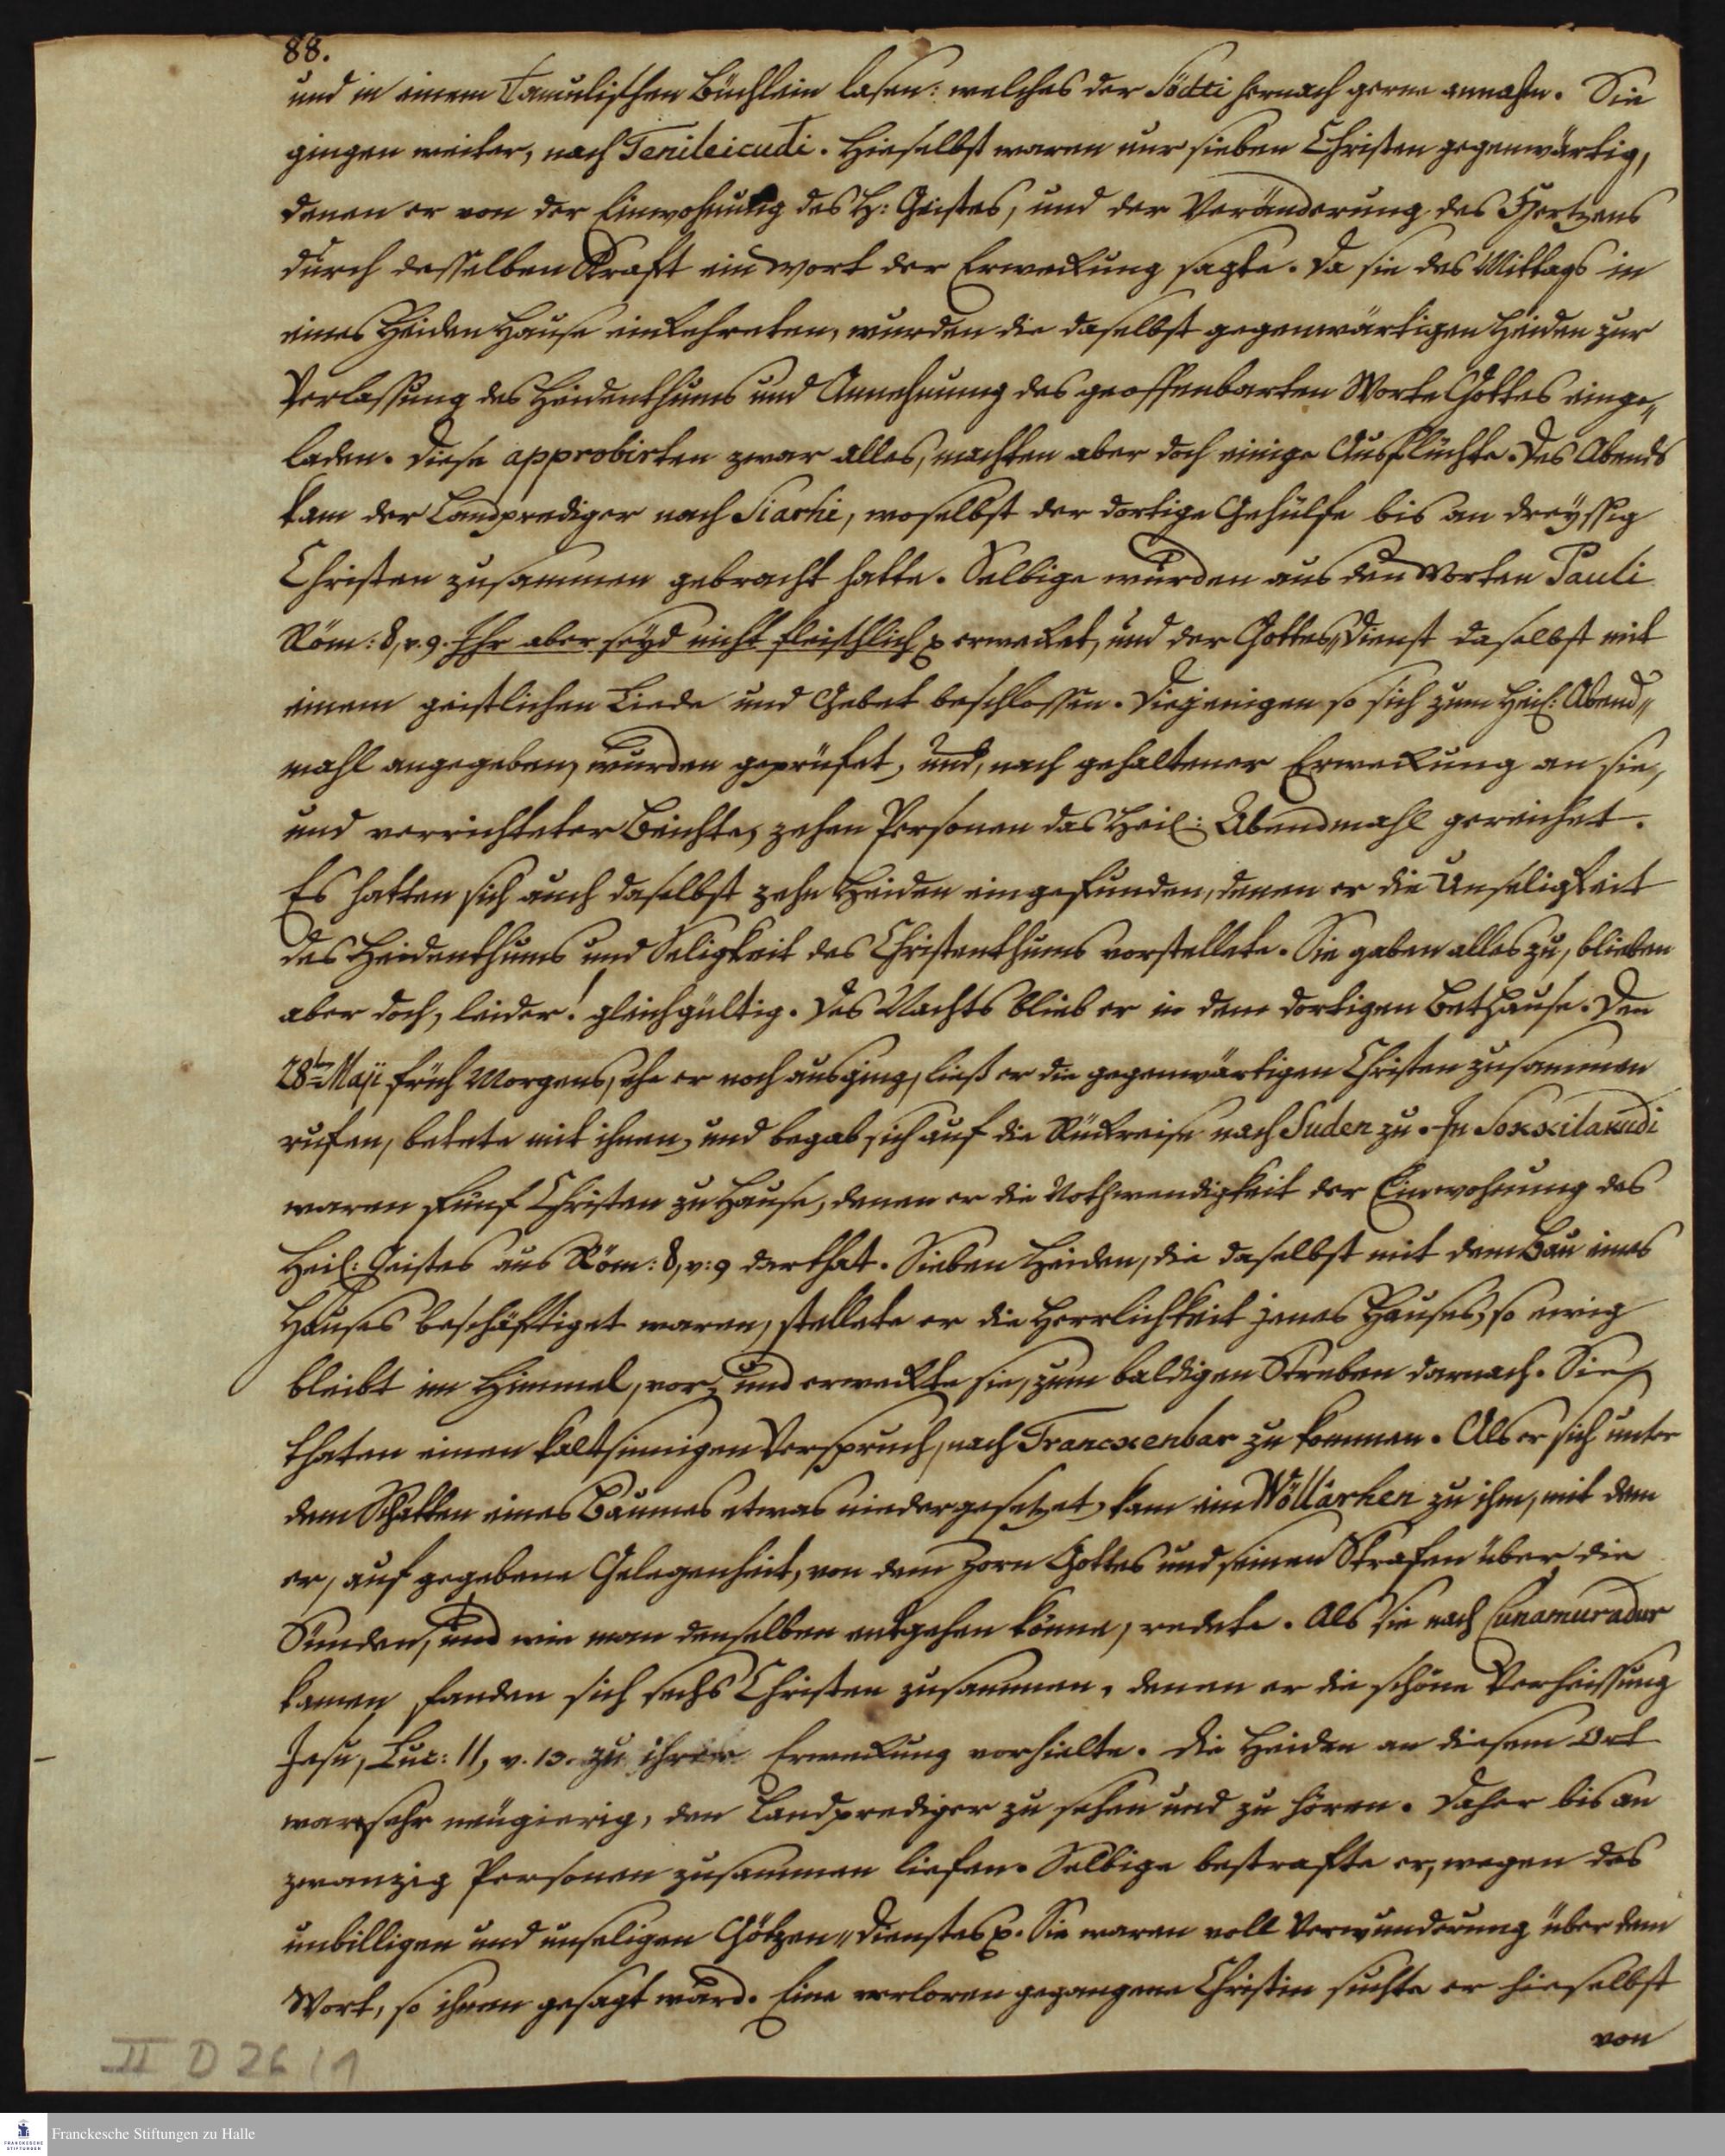 88.
und in einem Tamulischen Büchlein lasen: welches der Södti hernach gerne annahm. Sie
gingen weiter, nach Tenileicudi. Hieselbst waren nur sieben Christen gegenwärtig,
denen er von der Einwohnung des H: Geistes, und der Veränderung des Hertzens
durch desselben Kraft ein Wort der Erweckung sagte. Da sie des Mittags in
eines Heiden Hause einkehreten, wurden die daselbst gegenwärtigen Heiden zur
Verlassung des Heidenthums und Annehmung des geoffenbarten Worte Gottes einge„
laden. Diese approbirten zwar alles, machten aber doch einige Ausflüchte. Des Abends
kam der Landprediger nach Siarhi, woselbst der dortige Gehülfe bis an dreyssig
Christen zusammen gebracht hatte. Selbige wurden aus den Worten Pauli
Röm: 8, v. 9. Ihr aber seyd nicht fleischlich p erwecket, und der Gottes„dienst daselbst mit
einem geistlichen Liede und Gebet beschlossen. Diejenigen so sich zum Heil: Abend„
mahl angegeben, wurden geprüfet, und, nach gehaltener Erweckung an sie,
und verrichteter Beichte, zehen Personen das Heil: Abendmahl gereichet.
Es hatten sich auch daselbst zehn Heiden eingefunden, denen er die Unseligkeit
des Heidenthums und Seligkeit des Christenthums vorstellete. Sie gaben alles zu, blieben
aber doch, leider! gleichgültig. Des Nachts blieb er in dem dortigen Bethause. Den
28ten Maji früh Morgens, ehe er noch ausging, ließ er die gegenwärtigen Christen zusammen
rufen, betete mit ihnen, und begab sich auf die Rückreise nach Suden zu. In
waren fünf Christen zu Hause, denen er die Nothwendigkeit der Einwohnung des
Heil: Geistes aus Röm: 8, v: 9 darthat. Sieben Heiden, die daselbst mit dem Bau eines
Hauses beschäftiget waren, stellete er die Herrlichkeit jenes Hauses, so ewig
bleibt im Himmel, vor, und erweckte sie, zum baldigen Streben darnach. Sie
thaten einen kaltsinnigen Verspruch, nach Trancxenbar zu kommen. Als er sich unter
dem Schatten eines Baumes etwas niedergesetzet, kam ein Wöllärhen zu ihm, mit dem
er, auf gegebene Gelegenheit, von dem Zorn Gottes und seinen Strafen über die
Sünden, und wie man denselben entgehen könne, redete. Als sie nach Cunamuradur
kamen fanden sich sechs Christen zusammen, denen er die schöne Verheissung
Jesu, Luc: 11, v. 13. zu ihrer Erweckung vorhielte. Die Heiden an diesem Ort
waren sehr neugierig, den Landprediger zu sehen und zu hören. Daher bis an
zwanzig Personen zusammen liefen. Selbige bestrafte er, wegen des
unbilligen und unseligen Götzen„dienstes p. Sie waren voll Verwunderung über dem
Wort, so ihnen gesagt ward. Eine verloren gegangene Christin suchte er hieselbst
von
II D 26/1
Franckesche Stiftungen zu Halle